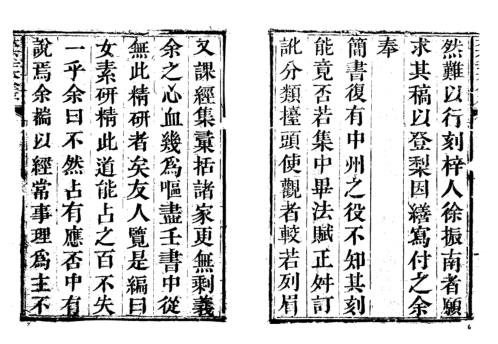 然難以行刻梓人徐振南者願
求其稿以登梨因繕寫付之余
奉
簡書復有中州之役不知其刻
能竟否若集中畢法賦正舛訂
訛分類擡頭使觀者較若列眉
又課經集彙括諸家更無剩義
余之心血幾爲嘔盡壬書中從
無此精研者矣友人覽是編曰
女素研精此道能占之百不失
一乎余曰不然占有應否中有
說焉余耑以經常事理爲主不
6